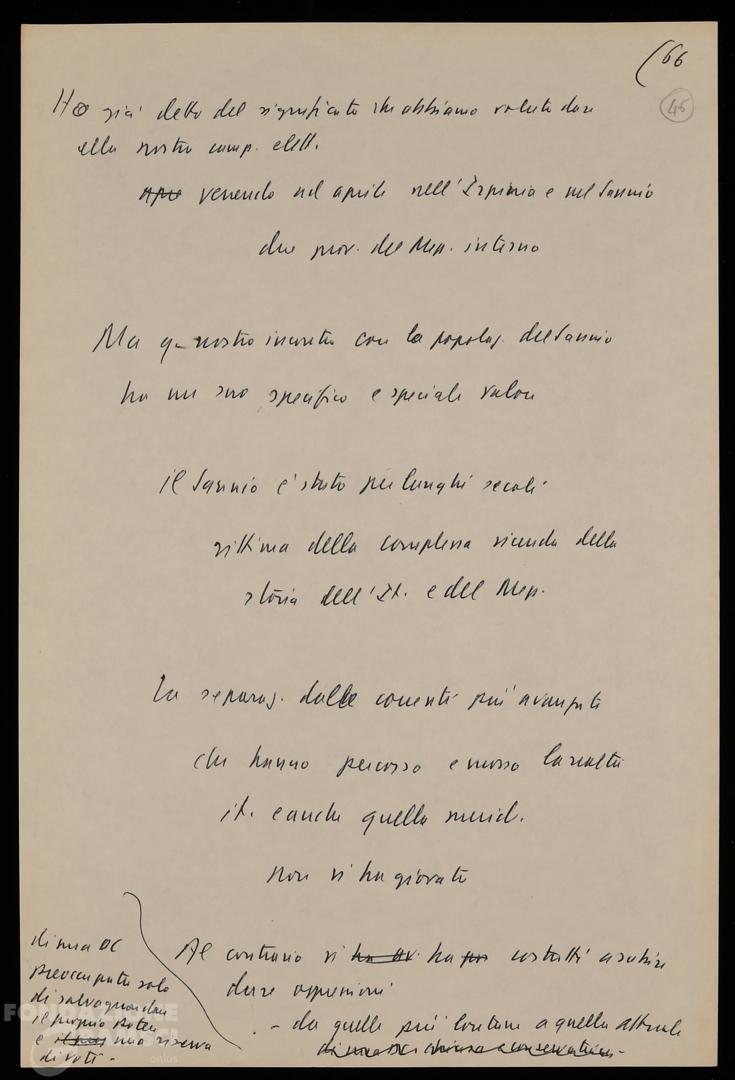 (66
46
Ho già detto del significato che abbiamo voluto dare
alla nostra camp. elett.
venendo ad aprirla nell'Irpinia e nel Sannio
due prov. del Mezz. interno
Ma q. nostro incontro con la popolaz. del Sannio
ha un suo specifico e speciale valore
il Sannio è stato per lunghi secoli
vittima della complessa vicenda della
storia dell'It. e del Mezz.
La separaz. dalle correnti più avanzate
che hanno percorso e mosso la realtà
it. e anche quella merid.
non vi ha giovato
Al contrario vi ha costretti a subire
dure oppressioni
- da quelle più lontane a quella attuale
di una DC chiusa e conservatrice -
di una DC
preoccupata solo
di salvaguardare
il proprio potere
e una riserva
di voti -
FONDAZIONE
GRAMSCI
onlus